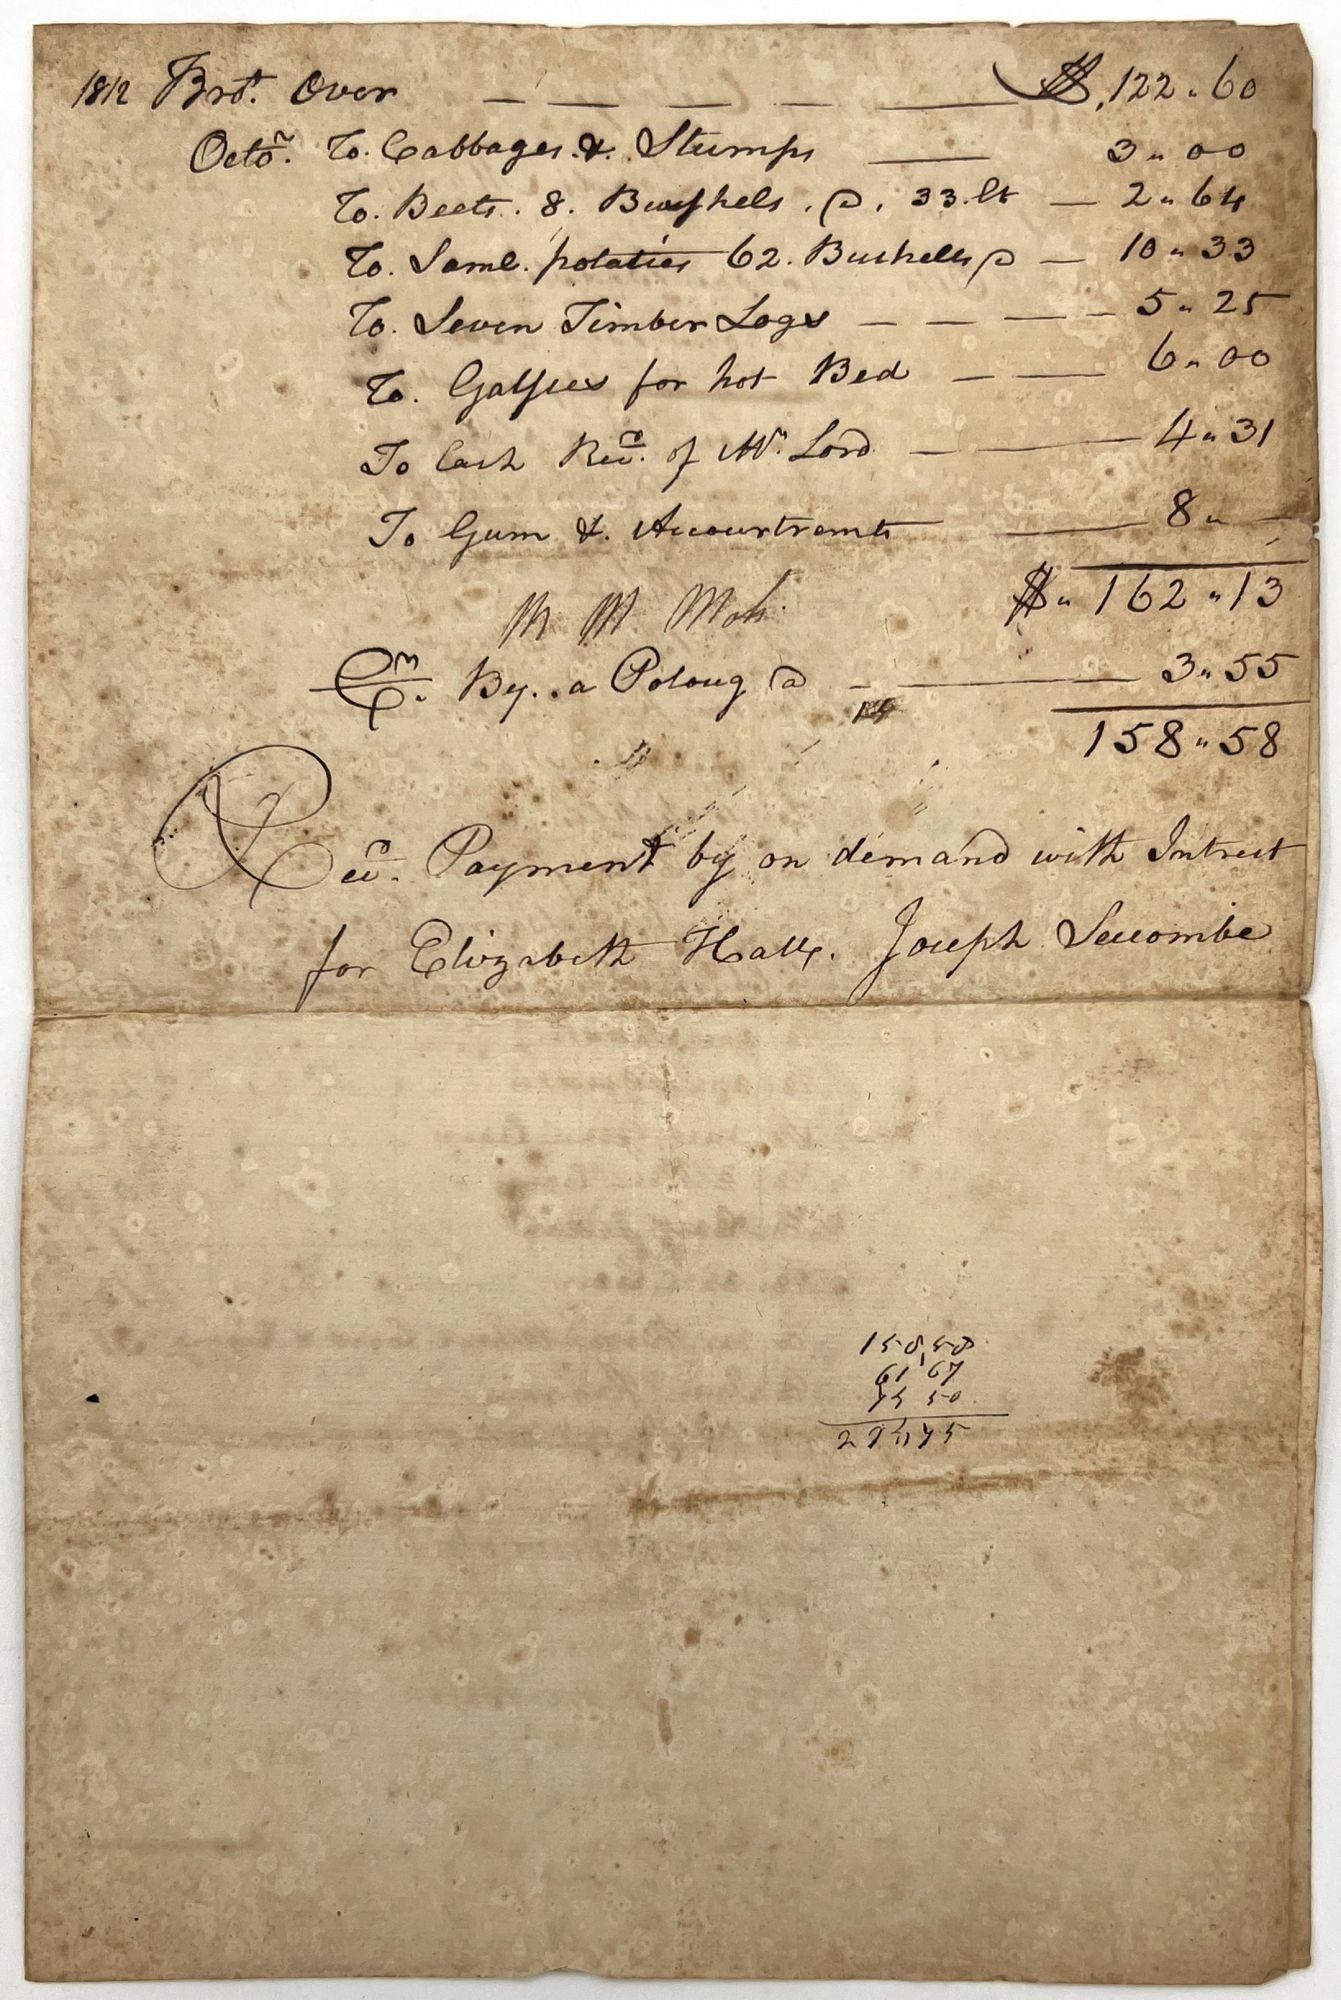 1812 Bro.t Over $.122.60
Octo.r To. Cabbages. &. Stumps 3.00
To. Beets. 8. Bushels. @. 33. Ct 2.64
To. Saml. potaties 62. Bushells @ 10.33
To. Seven Timber Logs 5.25
To. Galsses for hot Bed 6.00
To Cash Rec.d of Mr. Lord 4.31
To Gum & Accourtrements 8.
$.162.13
M M Moh
By. a Ploug @ 3.55
158.58
Rec.d Payment by on demand with Intrest
for Elizabeth Hall. Joseph Seccombe
158,58
61 67
75 50
295,75